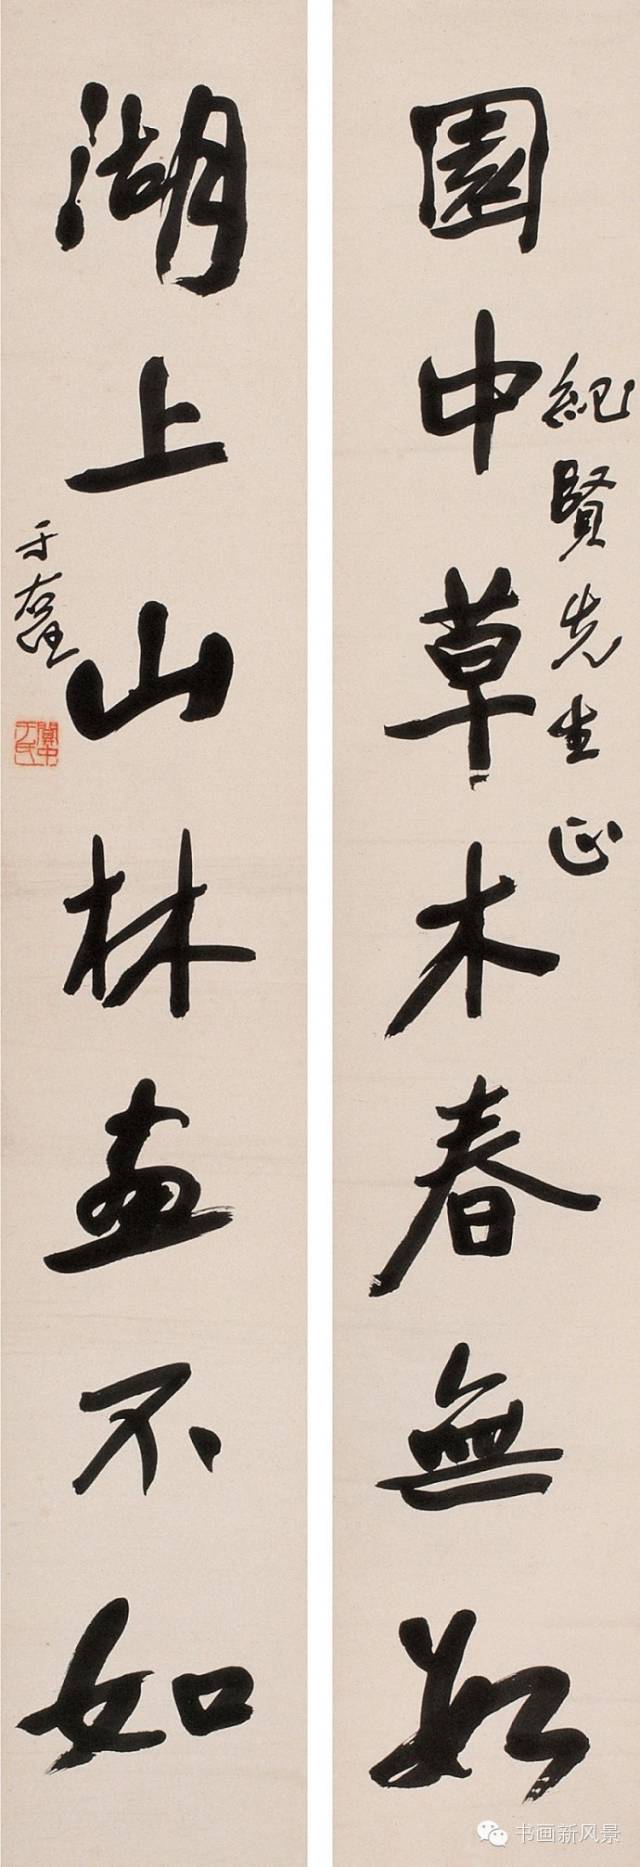 園中草木春無數
紀賢先生正
湖上山林畫不如
于右任
關中
于氏
书画新风景